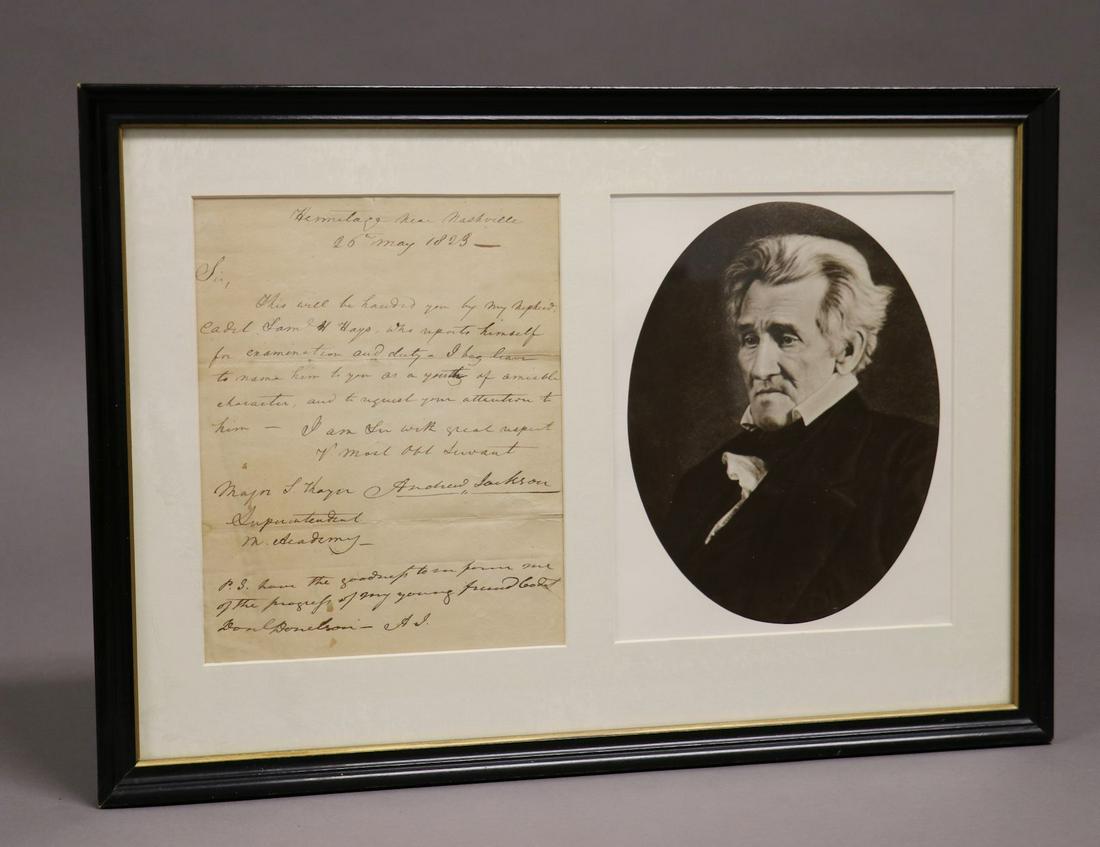 Hermitage Near Nashville
26th May 1823 —
Sir,
This will be handed you by my Nephew
Cadet Saml H Hays, who reports himself
for examonation and duty — I beg leave
to name him to you as a youth of amiable
character, and to request your attention to
him — I am Sir with great respect
yr most Obt Servant
Major S. Thayer Andrew Jackson
Superintendent
M. Academy —
P.S. have the goodness to inform me
of the progress of my young friend Cadet
Danl Donelson — A.J.